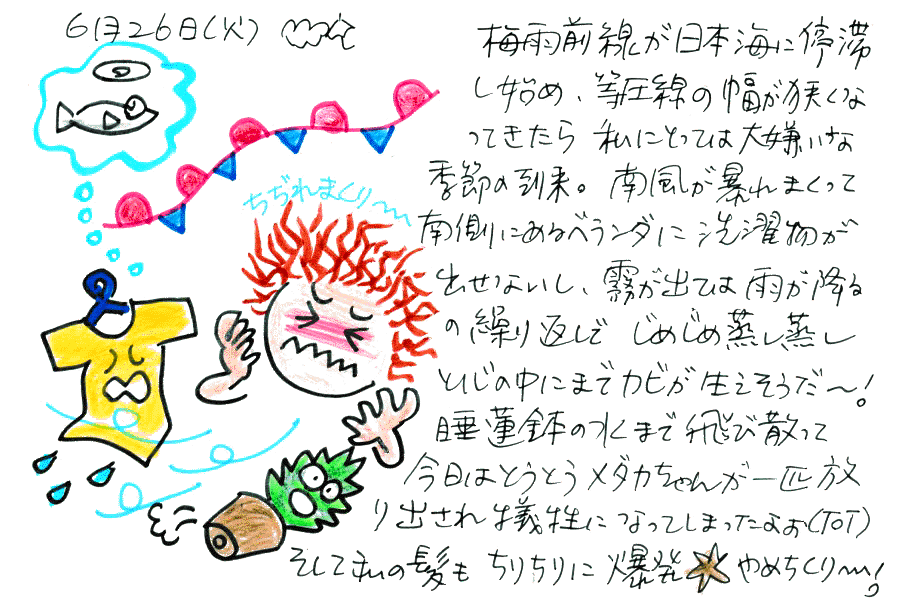 6月26日(火)
梅雨前線が日本海に停滞
し始め、等圧線の幅が狭くな
ってきたら 私にとっては大嫌いな
季節の到来。南風が暴れまくって
南側にあるベランダに洗濯物が
出せないし、霧が出ては雨が降る
の繰り返しで じめじめ蒸し蒸し
心の中にまでカビが生えそうだ〜!
睡蓮鉢の水まで飛び散って
今日はとうとうメダカちゃんが一匹放
り出され犠牲になってしまったよぉ(ToT)
そして私の髪も ちりちりに 爆発 やめちくり〜!
ちぢれまくり〜